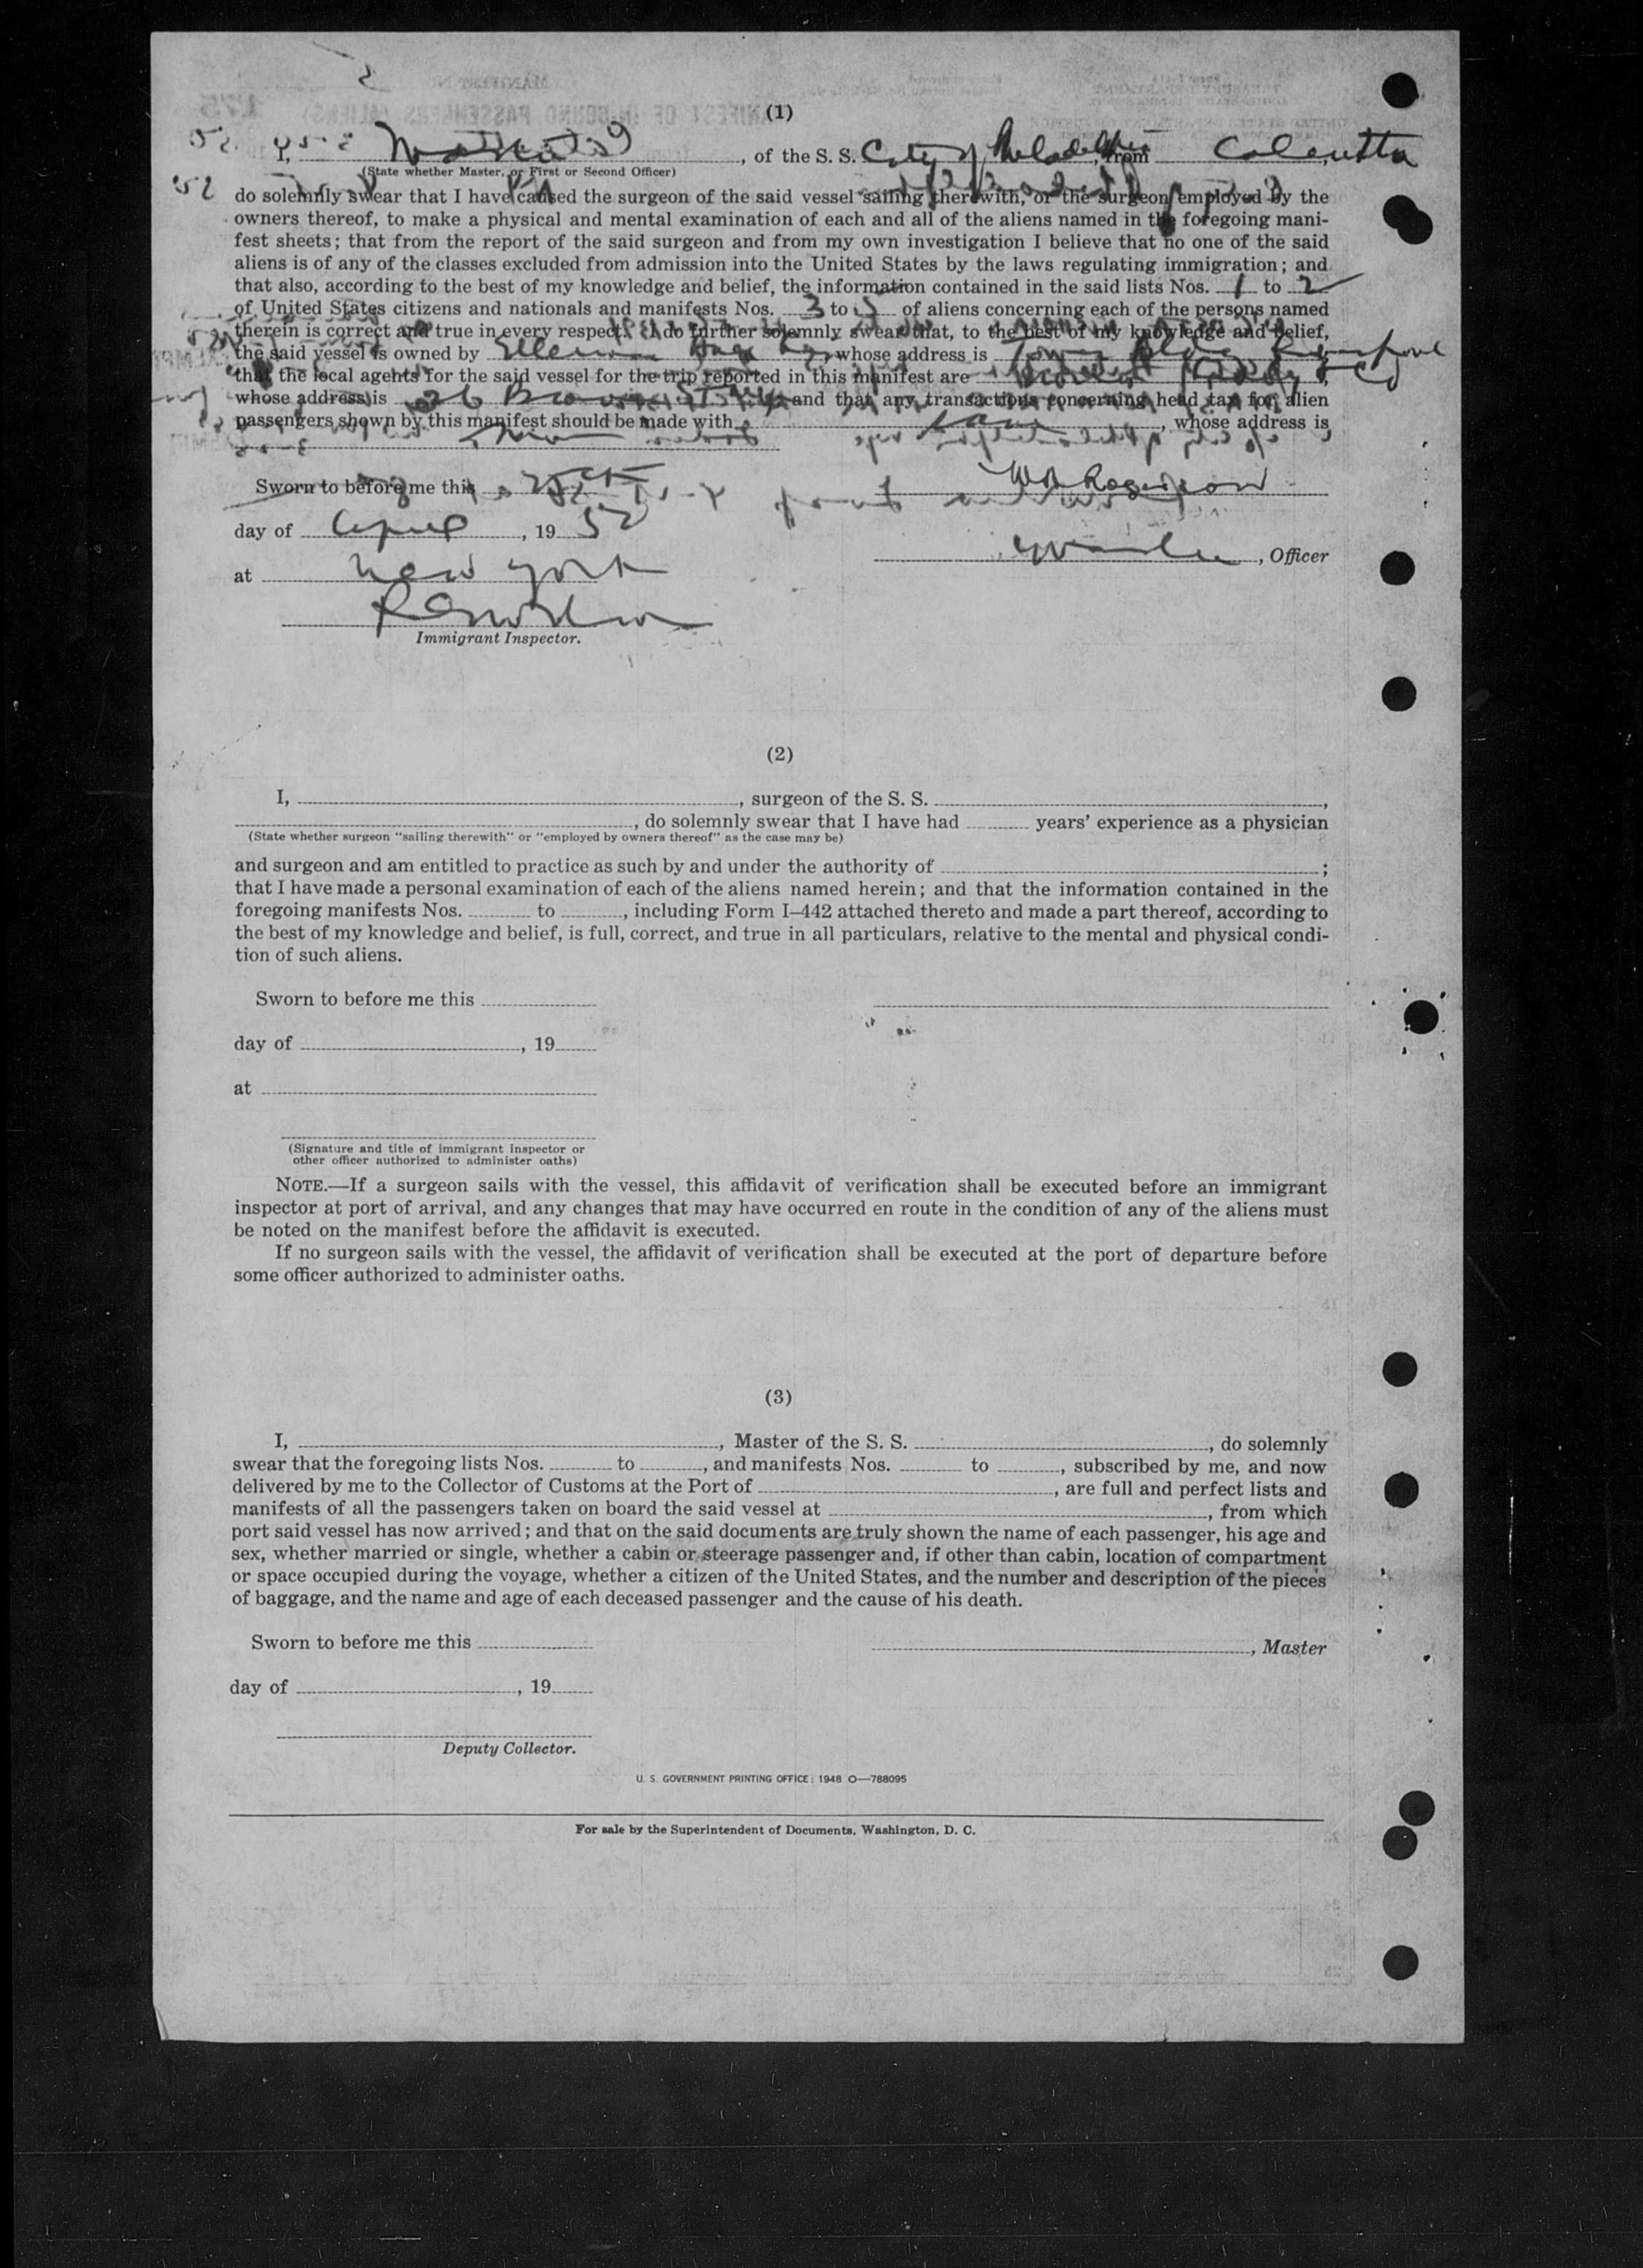 (1)
I, Master, of the S. S. City of Philadelphia, from Calcutta
(State whether Master, or First or Second Officer)
do solemnly swear that I have caused the surgeon of the said vessel sailing therewith, or the surgeon employed by the
owners thereof, to make a physical and mental examination of each and all of the aliens named in the foregoing mani-
fest sheets; that from the report of the said surgeon and from my own investigation I believe that no one of the said
aliens is of any of the classes excluded from admission into the United States by the laws regulating immigration; and
that also, according to the best of my knowledge and belief, the information contained in the said lists Nos. 1 to 2
of United States citizens and nationals and manifests Nos. 3 to 5 of aliens concerning each of the persons named
therein is correct and true in every respect. I do further solemnly swear that, to the best of my knowledge and belief,
the said vessel is owned by Ellerman, whose address is Tower Bldg Liverpool
that the local agents for the said vessel for the trip reported in this manifest are & Co,
whose address is 26 and that any transactions concerning head tax for alien
passengers shown by this manifest should be made with same, whose address is
Sworn to before me this 25th
day of April, 1952
, Officer
at New York
Immigrant Inspector.
(2)
I, , surgeon of the S. S. ,
, do solemnly swear that I have had years' experience as a physician
(State whether surgeon "sailing therewith" or "employed by owners thereof" as the case may be)
and surgeon and am entitled to practice as such by and under the authority of ;
that I have made a personal examination of each of the aliens named herein; and that the information contained in the
foregoing manifests Nos. to , including Form I–442 attached thereto and made a part thereof, according to
the best of my knowledge and belief, is full, correct, and true in all particulars, relative to the mental and physical condi-
tion of such aliens.
Sworn to before me this
day of , 19
at
(Signature and title of immigrant inspector or
other officer authorized to administer oaths)
NOTE.—If a surgeon sails with the vessel, this affidavit of verification shall be executed before an immigrant
inspector at port of arrival, and any changes that may have occurred en route in the condition of any of the aliens must
be noted on the manifest before the affidavit is executed.
If no surgeon sails with the vessel, the affidavit of verification shall be executed at the port of departure before
some officer authorized to administer oaths.
(3)
I, , Master of the S. S. , do solemnly
swear that the foregoing lists Nos. to , and manifests Nos. to , subscribed by me, and now
delivered by me to the Collector of Customs at the Port of , are full and perfect lists and
manifests of all the passengers taken on board the said vessel at , from which
port said vessel has now arrived; and that on the said documents are truly shown the name of each passenger, his age and
sex, whether married or single, whether a cabin or steerage passenger and, if other than cabin, location of compartment
or space occupied during the voyage, whether a citizen of the United States, and the number and description of the pieces
of baggage, and the name and age of each deceased passenger and the cause of his death.
Sworn to before me this
, Master
day of , 19
Deputy Collector.
U. S. GOVERNMENT PRINTING OFFICE: 1948 O—788095
For sale by the Superintendent of Documents, Washington, D. C.